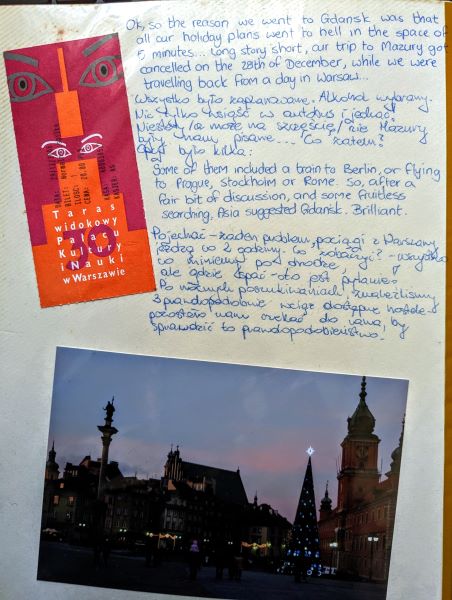 Ok, so the reason we went to Gdańsk was that
all our holiday plans went to hell in the space of
5 minutes... Long story short, our trip to Mazury got
cancelled on the 28th of December, while we were
travelling back from a day in Warsaw...
Wszystko było zaplanowane. Alkohol wybrany.
Nic tylko wsiąść w autobus i jechać!
Niestety/a może na szczęście/nie Mazury
były nam pisane... Co zatem?
Opcji było kilka:
Some of them included a train to Berlin, or flying
to Prague, Stockholm or Rome. So, after a
fair bit of discussion, and some fruitless
searching, Asia suggested Gdańsk. Brilliant.
Pojechać - żaden problem, pociągi z Warszawy
jeżdżą co 2 godziny. Co zobaczyć? - wszystko
co miniemy pod drodze,
ale gdzie spać - oto jest pytanie?
Po wielu poszukiwaniach, znaleźliśmy
3 prawdopodobnie wciąż dostępne hostele -
pozostało nam czekać do rana, by
sprawdzić to prawdopodobieństwo.
Taras
widokowy
Pałacu
Kultury
i Nauki
w Warszawie